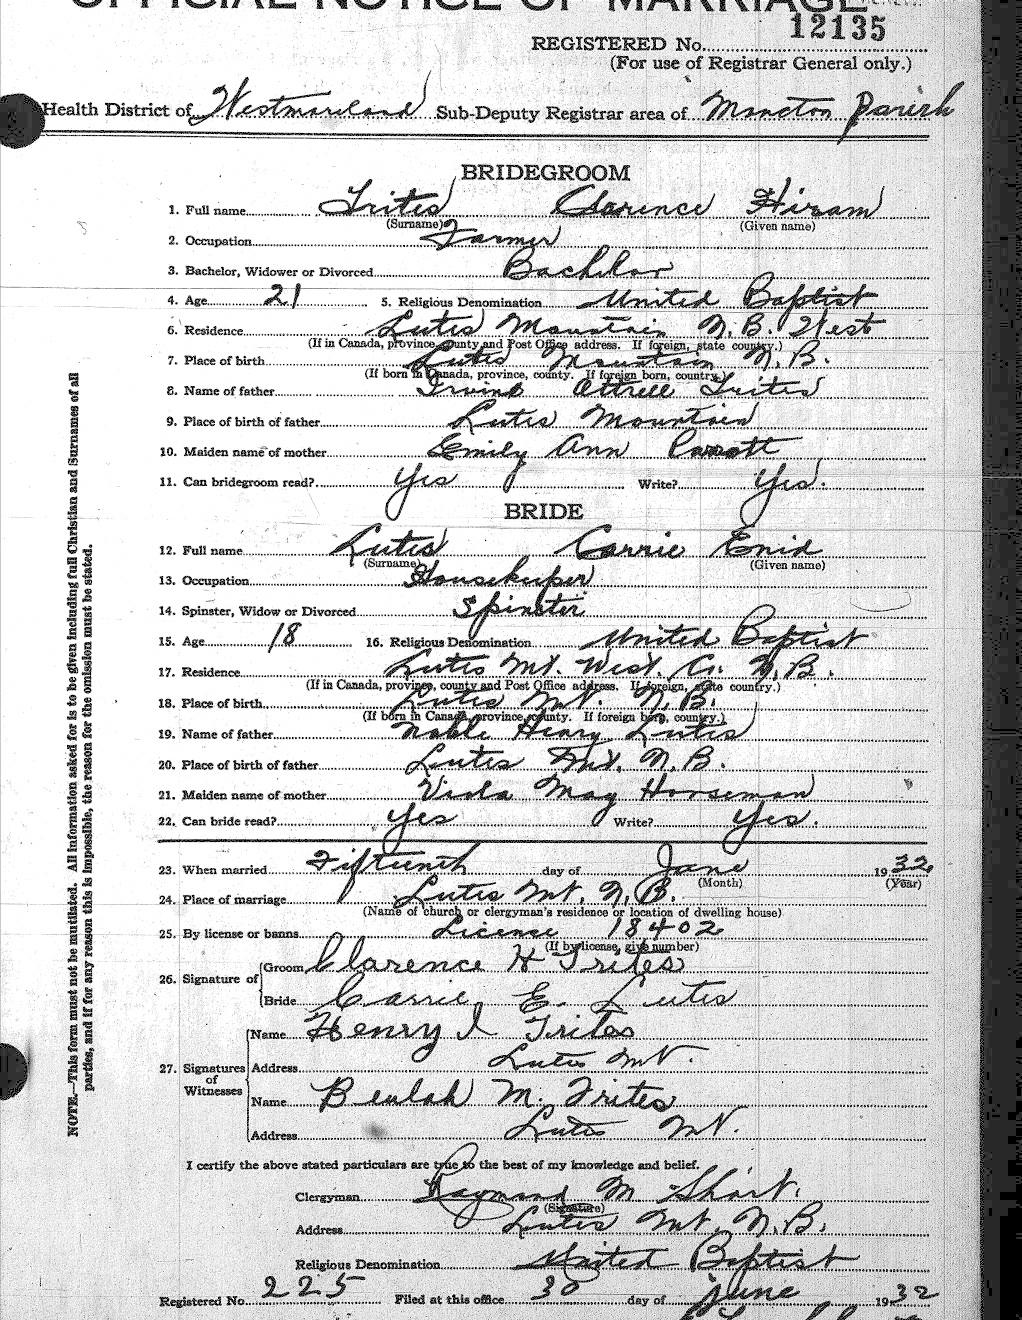 OFFICIAL NOTICE OF MARRIAGE
12135
REGISTERED No.
(For use of Registrar General only.)
Health District of Westmoreland Sub-Deputy Registrar area of Moncton Parish
BRIDEGROOM
1. Full name Trites Clarence Hiram
(Surname) (Given name)
2. Occupation Farmer
3. Bachelor, Widower or Divorced Bachelor
4. Age 21 5. Religious Denomination United Baptist
6. Residence Lutes Mountain N.B. West
(If in Canada, province, county and Post Office address. If foreign, state country.)
7. Place of birth Lutes Mountain N.B.
(If born in Canada, province, county. If foreign born, country.)
8. Name of father Irvine Ottrell Trites
9. Place of birth of father Lutes Mountain
10. Maiden name of mother Emily Ann
11. Can bridegroom read? Yes Write? Yes.
BRIDE
12. Full name Lutes Carrie Enid
(Surname) (Given name)
13. Occupation Housekeeper
14. Spinster, Widow or Divorced Spinster
15. Age 18 16. Religious Denomination United Baptist
17. Residence Lutes Mt. West. Co. N.B.
(If in Canada, province, county and Post Office address. If foreign, state country.)
18. Place of birth Lutes Mt. N.B.
(If born in Canada, province, county. If foreign born, country.)
19. Name of father Noble Henry Lutes
20. Place of birth of father Lutes Mt. N.B.
21. Maiden name of mother Viola May Horseman
22. Can bride read? Yes Write? Yes.
23. When married Fifteenth day of June 1932
(Month) (Year)
24. Place of marriage Lutes Mt. N.B.
(Name of church or clergyman's residence or location of dwelling house)
25. By license or banns License 18402
(If by license, give number)
26. Signature of Groom Clarence H Trites
Bride Carrie E. Lutes
27. Signatures of Witnesses
Name Henry I Trites
Address Lutes Mt.
Name Beulah M. Trites
Address Lutes Mt.
I certify the above stated particulars are true to the best of my knowledge and belief.
Clergyman Raymond M Short.
(Signature)
Address Lutes Mt. N.B.
Religious Denomination United Baptist
Registered No. 225 Filed at this office 30 day of June 1932
NOTE.—This form must not be mutilated. All information asked for is to be given including full Christian and Surnames of all
parties, and if for any reason this is impossible, the reason for the omission must be stated.